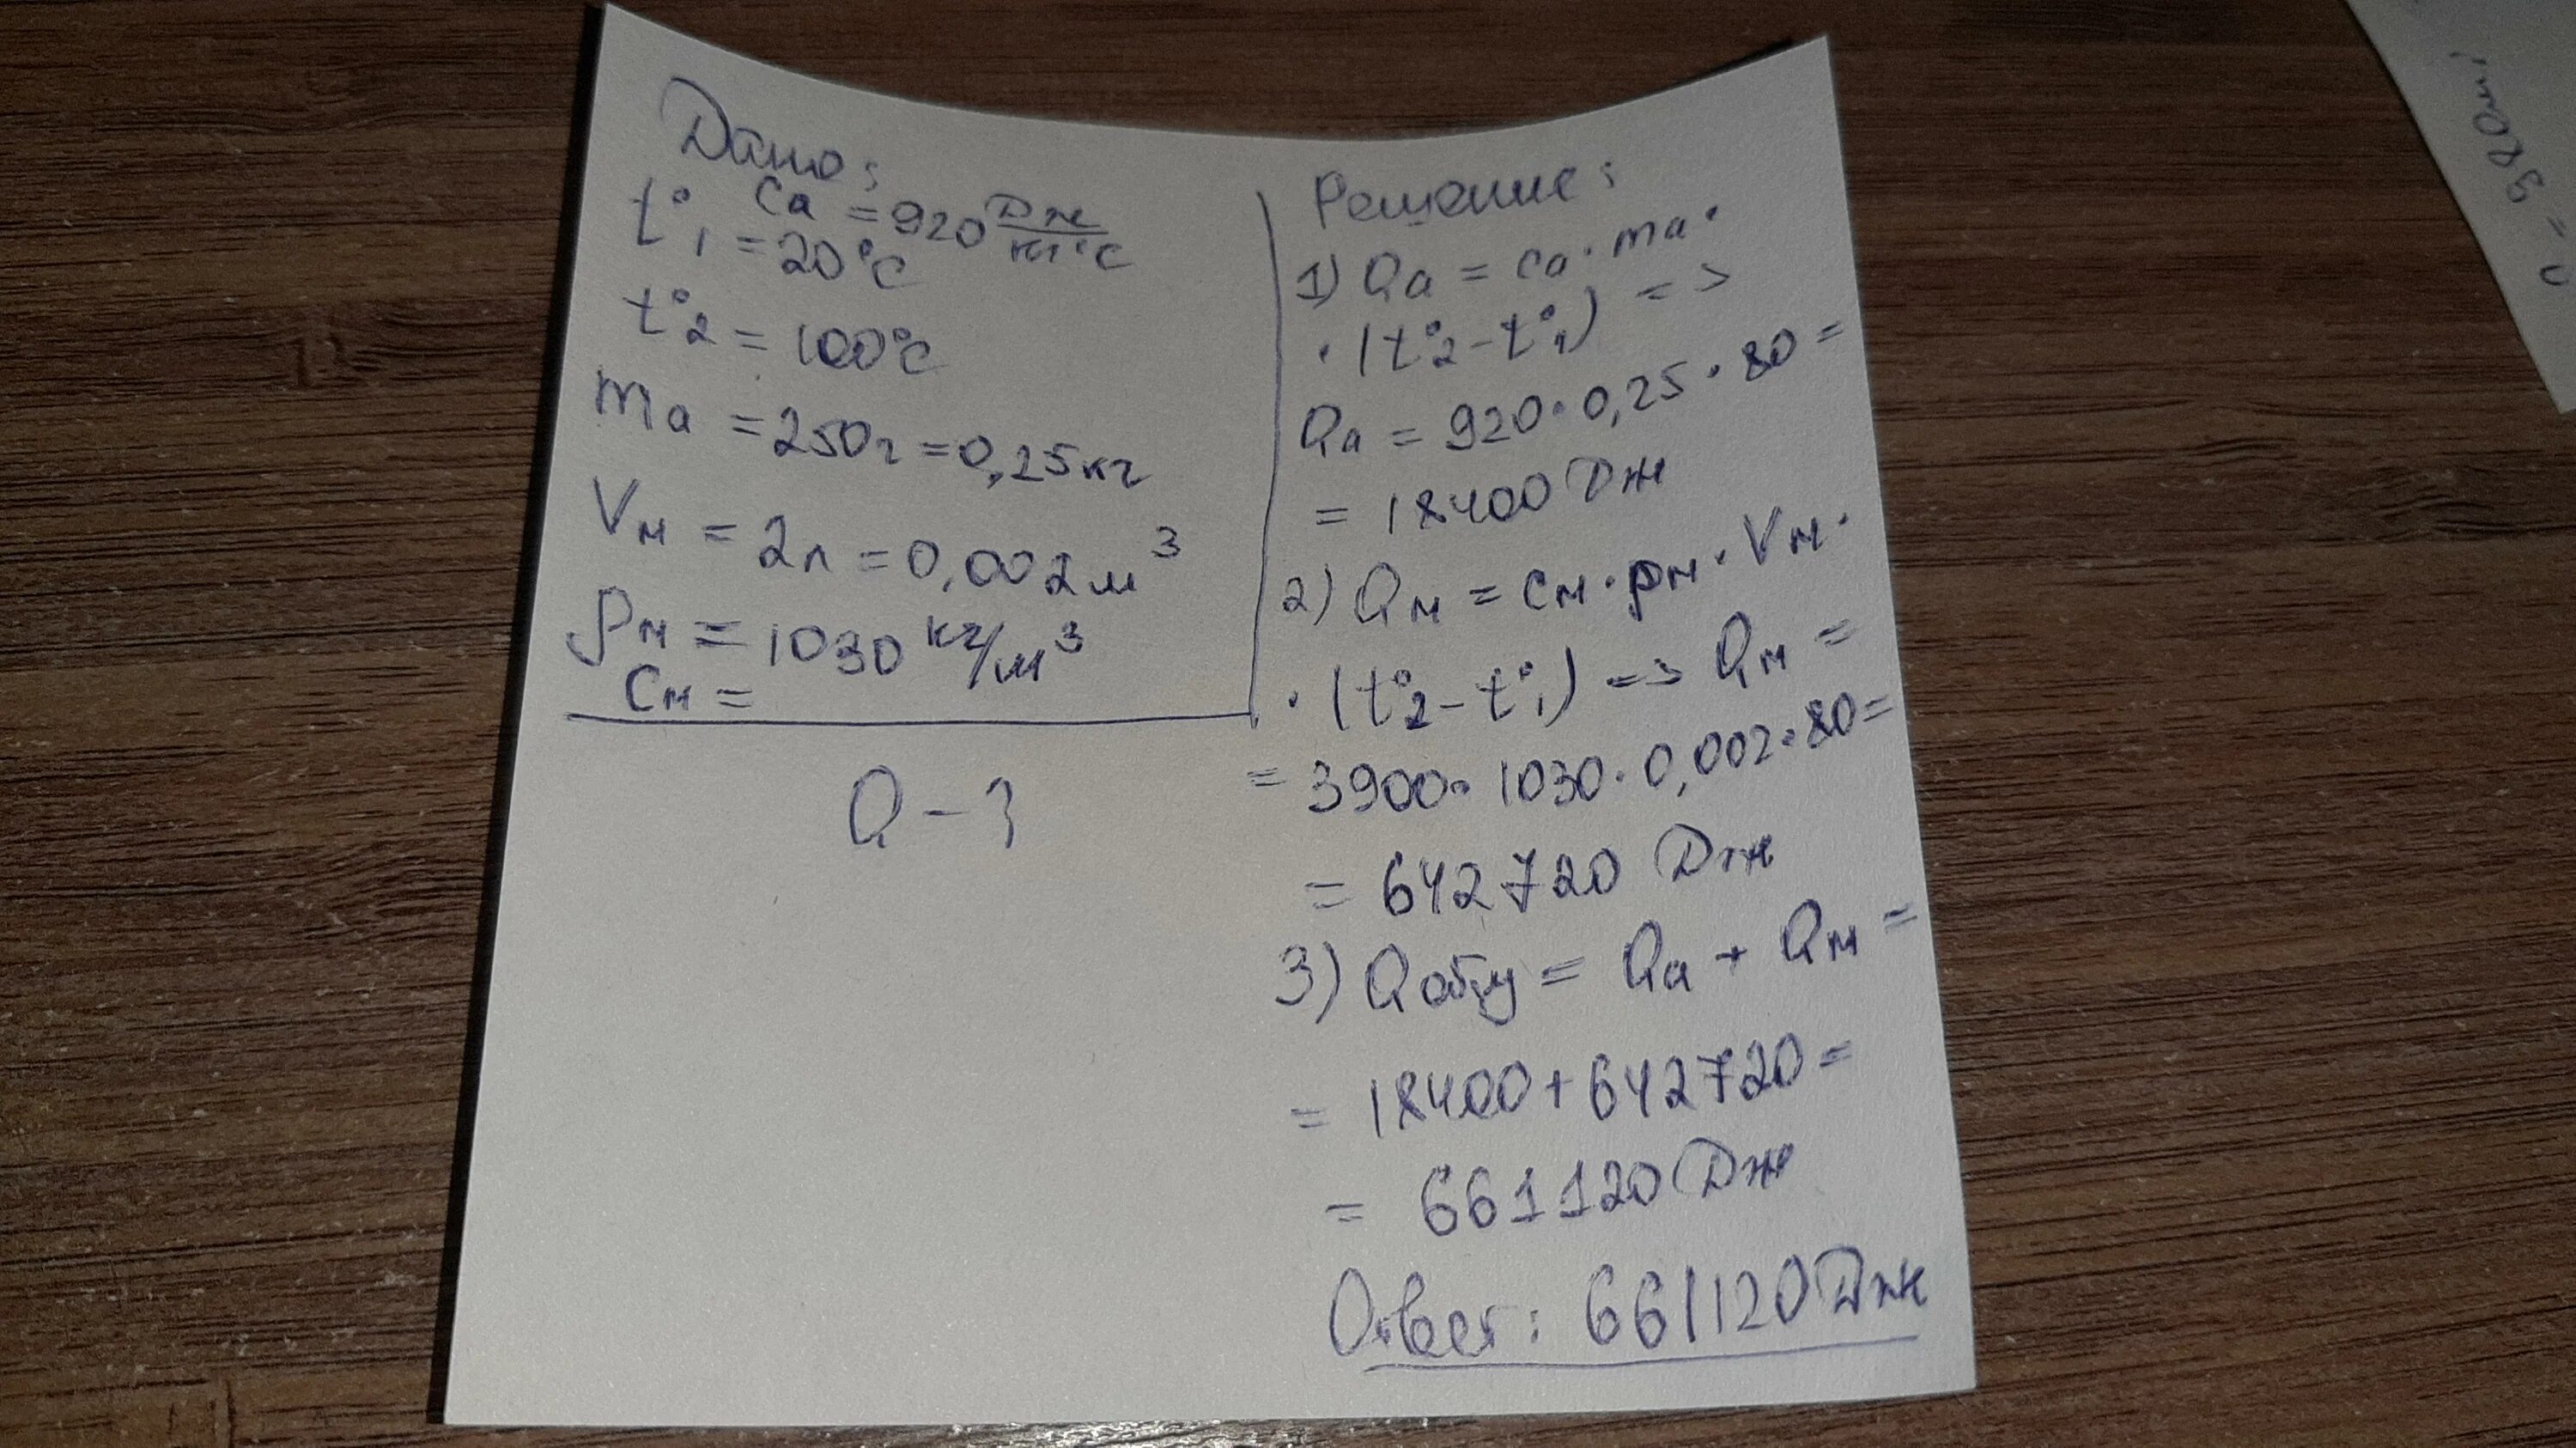 Дано:
Cа = 920 Дж/кг°C
t°₁ = 20°C
t°₂ = 100°C
mа = 250г = 0,25кг
Vм = 2л = 0,002м³
ρм = 1030 кг/м³
Cм =
Q - ?
Решение:
1) Qа = cа · mа ·
· (t°₂ - t°₁) =>
Qа = 920 · 0,25 · 80 =
= 18400 Дж
2) Qм = cм · ρм · Vм ·
· (t°₂ - t°₁) => Qм =
= 3900 · 1030 · 0,002 · 80 =
= 642720 Дж
3) Qобщ = Qа + Qм =
= 18400 + 642720 =
= 661120 Дж
Ответ: 661120 Дж